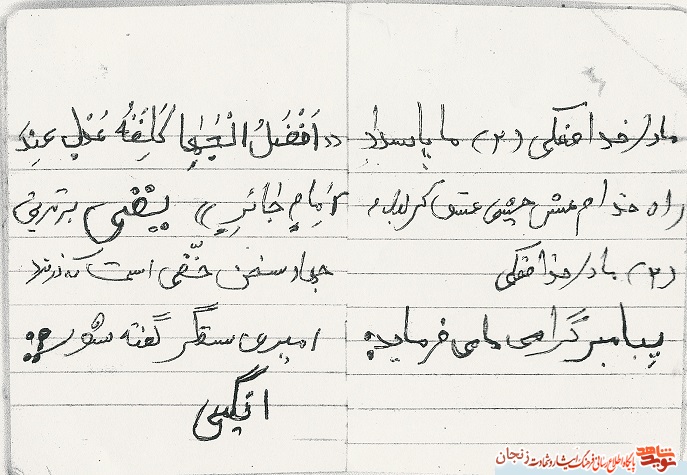 مادر خدا (۲) ما پاسدار
راه خدا عشق حسینی عشق کربلا
(۲) مادر خدا
پیامبر گرامی ما می فرماید:
«اَفْضَلُ الْجَهادِ كَلِمَةُ عَدْلٍ عِنْدَ
اِمامٍ جائِرٍ» یعنی برترین
جهاد سخن حقّی است که نزد
امیری ستمگر گفته شود.
نوید شاهد
پایگاه اطلاع رسانی فرهنگ ایثار و شهادت زنجان